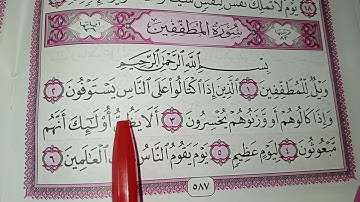 يَوْمَ لَا تَمْلِكُ نَفْسٌ لِنَفْسٍ شَيْـًٔا
سُورَةُ الْمُطَفِّفِينَ
بِسْمِ اللَّهِ الرَّحْمَٰنِ الرَّحِيمِ
وَيْلٌ لِلْمُطَفِّفِينَ ١ الَّذِينَ إِذَا اكْتَالُوا عَلَى النَّاسِ يَسْتَوْفُونَ ٢
وَإِذَا كَالُوهُمْ أَو وَزَنُوهُمْ يُخْسِرُونَ ٣ أَلَا يَظُنُّ أُولَٰئِكَ أَنَّهُم
مَبْعُوثُونَ ٤ لِيَوْمٍ عَظِيمٍ ٥ يَوْمَ يَقُومُ النَّاسُ لِرَبِّ الْعَالَمِينَ ٦
٥٨٧